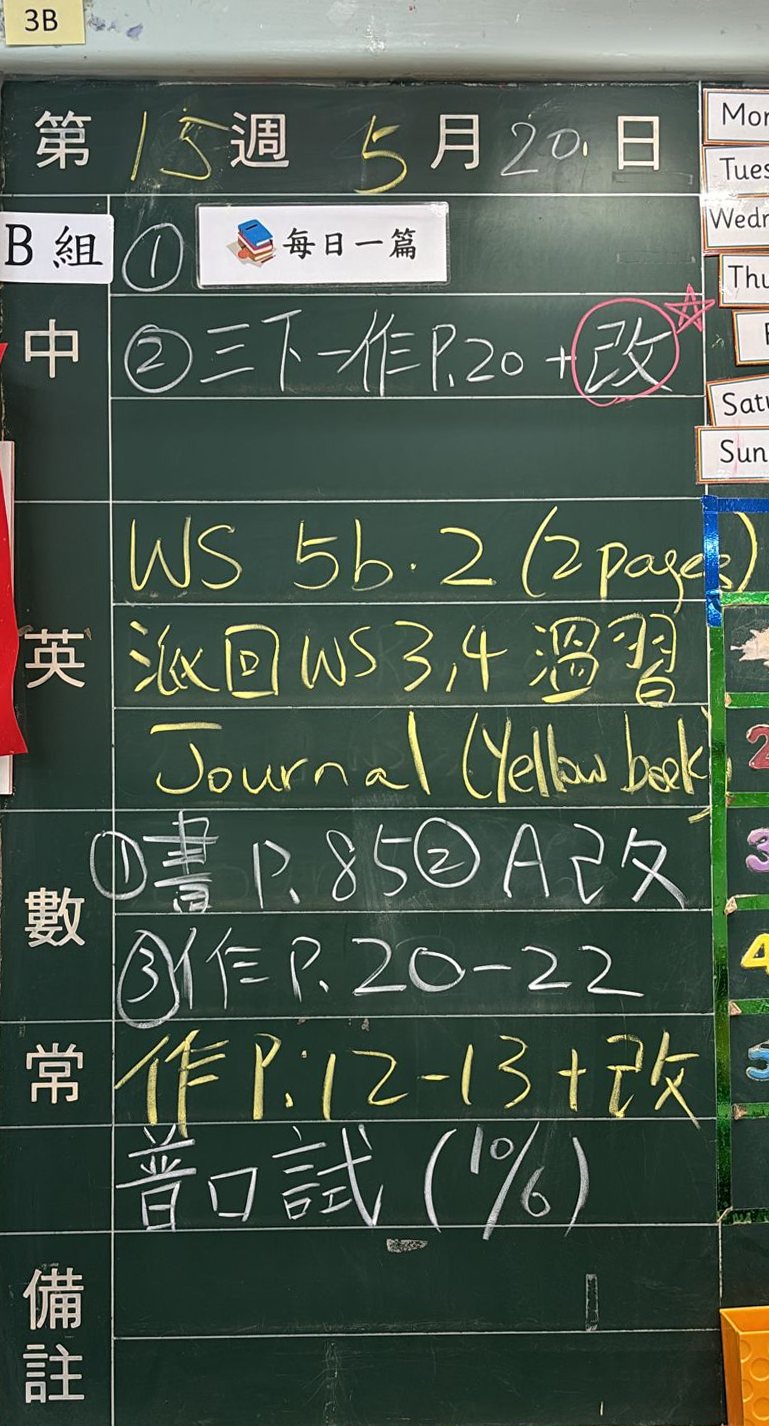 3B
第 15 週 5 月 20 日
B 組 ① 每日一篇
中 ② 三下一作 P.20 + 改
英
WS 5b.2 (2 pages)
派回 WS 3,4 溫習
Journal (Yellow book)
數
① 書 P.85 ② A 改
③ 作 P.20-22
常 作 P.12-13 + 改
普口試 (10%)
備註
Mon
Tues
Wedn
Thu
F
Satu
Sun
2
3
4
5